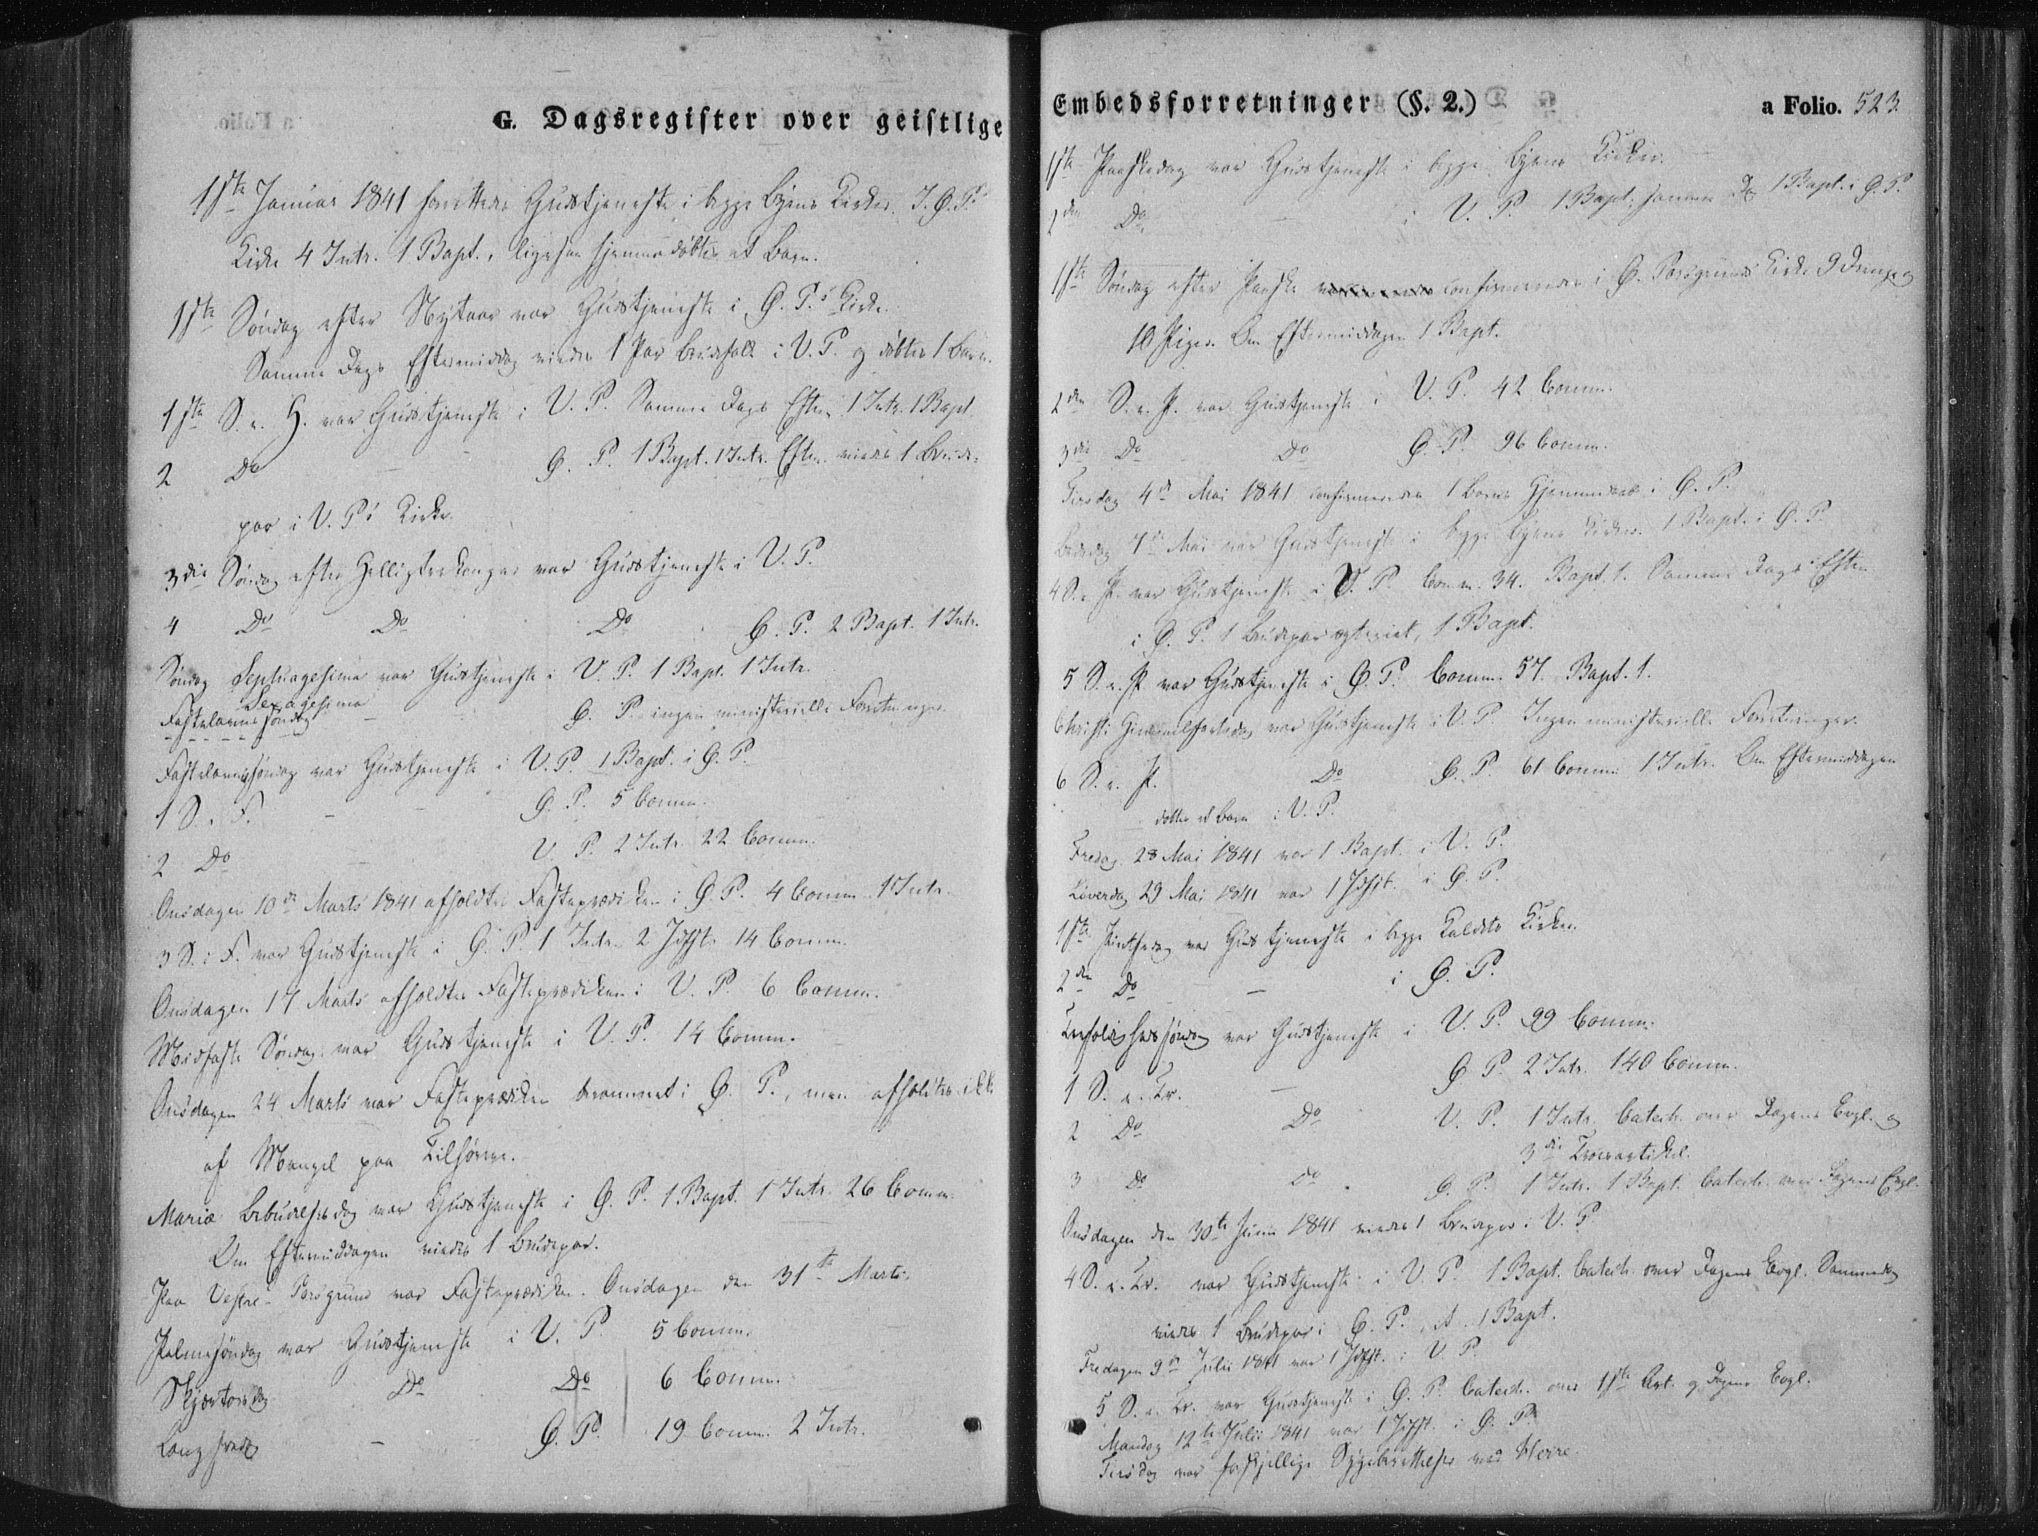 G. Dagsregister over geistlige
1ste Januar 1841 forrettedes Gudstjeneste i begge Byens Kirker. I Ø. P.s
Kirke 4 Intr. 1 Bapt., ligesaa hjemmedøbtes et Barn.
1ste Søndag efter Nytaar var Gudstjeneste i Ø. P.s Kirke.
Samme Dags Eftermiddag viedes 1 Par Brudefolk i V. P. og døbtes 1 Barn.
1ste S. e. H. var Gudstjeneste i V. P. Samme Dags Efterm. 1 Intr. 1 Bapt.
2 Do – – Ø. P. 1 Bapt. 1 Intr. Efterm. viedes 1 Brude-
par i V. P.s Kirke.
3die Søndag efter Helligtrekonger var Gudstjeneste i V. P.
4 Do Do Do Ø. P. 2 Bapt. 1 Intr.
Søndag Septuagesima var Gudstjeneste i V. P. 1 Bapt. 1 Intr.
Sexagesima
Fastelavns Søndag – Ø. P. ingen ministerielle Forretninger.
Fastelavnssøndag var Gudstjeneste i V. P. 1 Bapt. i Ø. P.
1 S. i F. – – Ø. P. 5 Comm.
2 Do V. P. 2 Intr. 22 Comm.
Onsdagen 10de Marts 1841 afholdtes Fasteprædiken i Ø. P. 4 Comm. 1 Intr.
3 S. i F. var Gudstjeneste i Ø. P. 1 Intr. 2 Jdfst. 14 Comm.
Onsdagen 17 Marts afholdtes Fasteprædiken i V. P. 6 Comm.
Midfaste Søndag var Gudstjeneste i V. P. 14 Comm.
Onsdagen 24 Marts var Fasteprædiken berammet i Ø. P., men afholdtes ikke
af Mangel paa Tilhørere.
Mariæ Bebudelsesdag var Gudstjeneste i Ø. P. 1 Bapt. 1 Intr. 26 Comm.
Om Eftermiddagen viedes 1 Brudepar.
Paa Vestre-Porsgrund var Fasteprædiken Onsdagen den 31te Marts.
Palmesøndag var Gudstjeneste i V. P. 5 Comm.
Skjærtorsdag Do Do 6 Comm.
Langfredag – Ø. P. 19 Comm. 2 Intr.
Embedsforretninger (§. 2.) a Folio. 523
1ste Paaskedag var Gudstjeneste i begge Byens Kirker.
2den Do – i V. P. 1 Bapt. samme Dag 1 Bapt. i Ø. P.
1ste Søndag efter Paaske confirmeredes i Ø. Porsgrunds Kirke 9 Drenge og
10 Piger. Om Eftermiddagen 1 Bapt.
2den S. e. P. var Gudstjeneste i V. P. 42 Comm.
3die Do Do Ø. P. 96 Comm.
Tirsdag 4de Mai 1841 confirmeredes 1 Barn Hjemmeme i Ø. P.
Bededag 7de Mai var Gudstjeneste i begge Byens Kirker. 1 Bapt. i Ø. P.
4 S. e. P. var Gudstjeneste i V. P. Comm. 34. Bapt. 1. Samme Dags Efterm.
i Ø. P. 1 Brudepar copuleret, 1 Bapt.
5 S. e. P. var Gudstjeneste i Ø. P. Comm. 57. Bapt. 1.
Christi Himmelfartsdag var Gudstjeneste i V. P. Ingen ministerielle Forretninger.
6 S. e. P. Do Ø. P. 61 Comm. 1 Intr. Om Eftermiddagen
døbtes et Barn i V. P.
Fredag 28 Mai 1841 var 1 Bapt. i V. P.
Løverdag 29 Mai 1841 var 1 Jdfst. i Ø. P.
1ste Pintsedag var Gudstjeneste i begge Kaldets Kirker.
2den Do – i Ø. P.
Trefoldighedssøndag var Gudstjeneste i V. P. 99 Comm.
1 S. e. Tr. – Ø. P. 2 Intr. 140 Comm.
2 Do Do V. P. 1 Intr. Catech. over Dagens Evgl. og
3die Troesartikel.
3 Do Do Ø. P. 1 Intr. 1 Bapt. Catech. over Dagens Evgl.
Onsdagen den 30te Juni 1841 viedes 1 Brudepar i V. P.
4 S. e. Tr. var Gudstjeneste i V. P. 1 Bapt. Catech. over Dagens Evgl. Sammedag
viedes 1 Brudepar i Ø. P. 1 Bapt.
Fredagen 9de Julii 1841 var 1 Jdfst. i V. P.
5 S. e. Tr. var Gudstjeneste i Ø. P. Catech. over 1ste Art. og Dagens Evgl.
Mandag 12te Julii 1841 var 1 Jdfst. i Ø. P.
Tirsdag var forskjellige Sygeberettelser ved Herre.